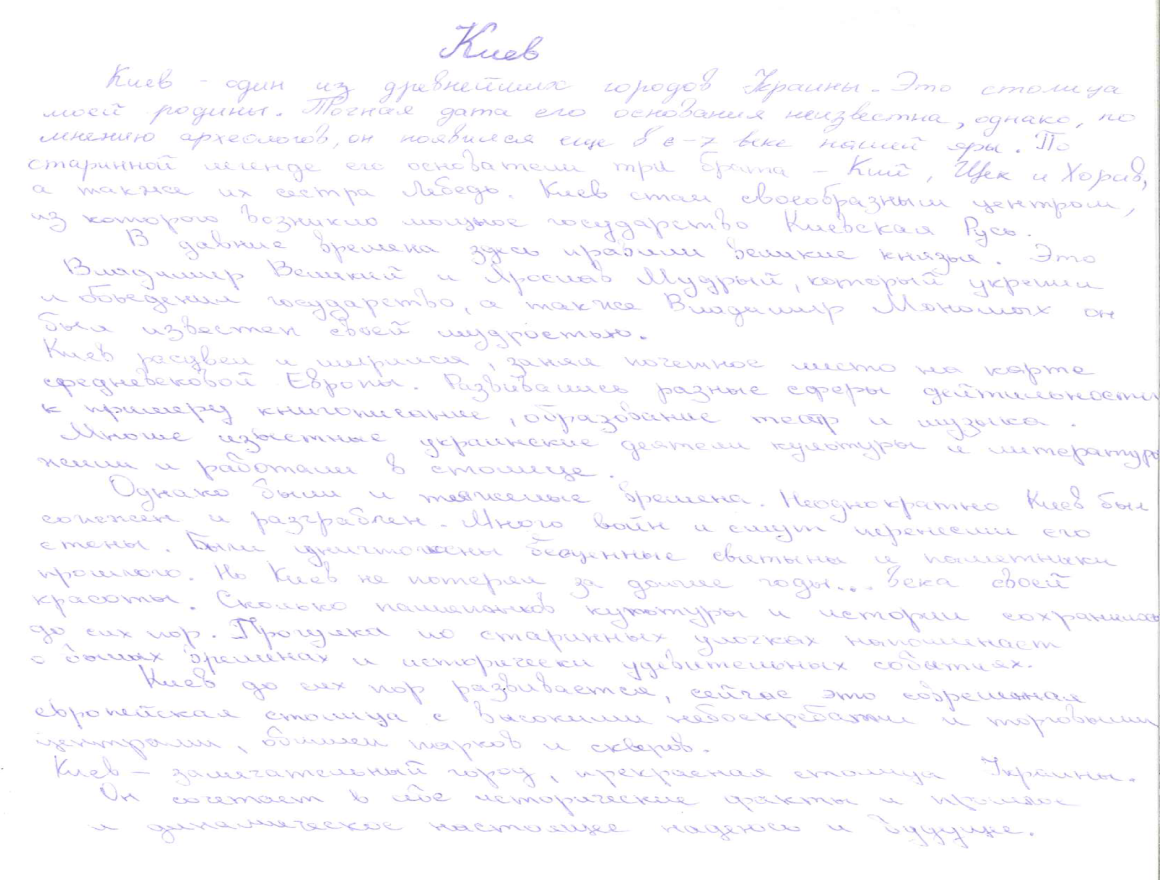 Киев
Киев - один из древнейших городов Украины. Это столица
моей родины. Точная дата его основания неизвестна, однако, по
мнению археологов, он появился еще в 6-7 веке нашей эры. По
старинной легенде его основатели три брата - Кий, Щек и Хорив,
а также их сестра Лебедь. Киев стал своеобразным центром,
из которого возникло мощное государство Киевская Русь.
В давние времена здесь правили великие князья. Это
Владимир Великий и Ярослав Мудрый, который укрепил
и объеденил государство, а также Владимир Мономах он
был известен своей мудростью.
Киев расцвел и ширился, занял почетное место на карте
средневековой Европы. Развивались разные сферы дейтильности
к примеру книгописание, образование театр и музыка.
Многие известные украинские деятели культуры и литературы
жили и работали в столице.
Однако были и тяжелые времена. Неоднократно Киев был
сожжен и разграблен. Много войн и смут перенесли его
стены. Были уничтожены бесценные святыни и памятники
прошлого. Но Киев не потерял за долгие годы... века своей
красоты. Сколько памятников культуры и истории сохранилось
до сих пор. Прогулка по старинных улочках напоминает
о былых временах и исторически удивительных событиях.
Киев до сих пор развивается, сейчас это современная
европейская столица с высокими небоскребами и торговыми
центрами, обилием парков и скверов.
Киев - замечательный город, прекрасная столица Украины.
Он сочетает в себе исторические факты и прошлое
и динамическое настоящее надеюсь и будущее.